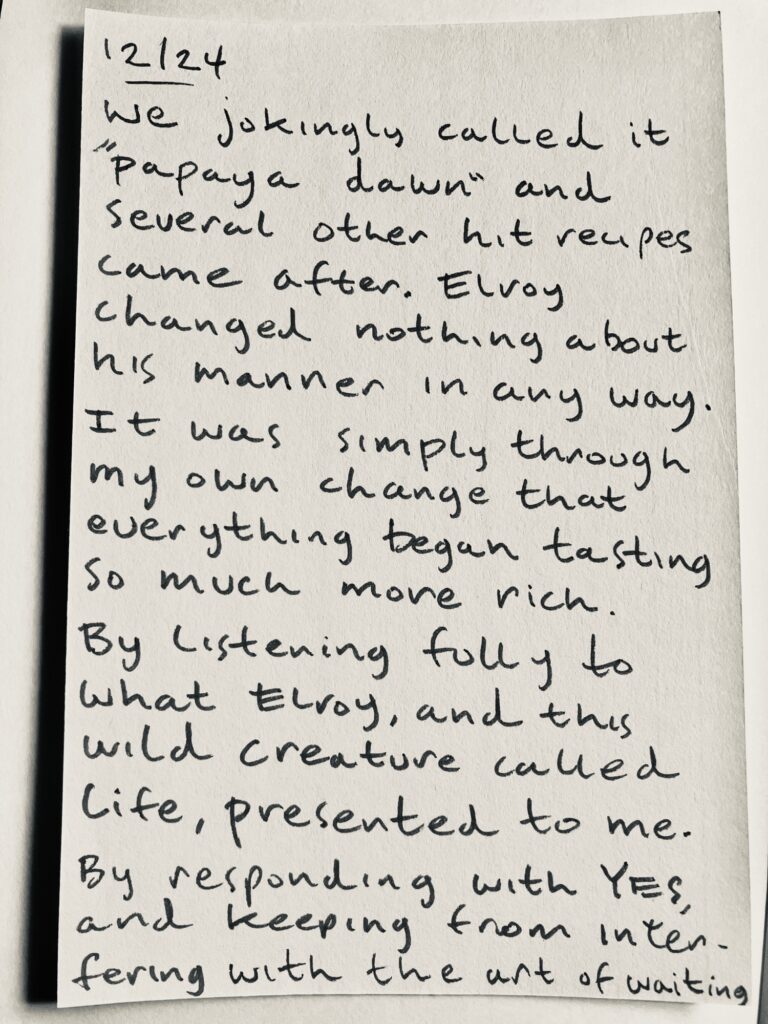 12/24
We jokingly called it
"papaya dawn" and
several other hit recipes
came after. Elroy
changed nothing about
his manner in any way.
It was simply through
my own change that
everything began tasting
so much more rich.
By listening fully to
what Elroy, and this
wild creature called
life, presented to me.
By responding with YES,
and keeping from inter-
fering with the art of waiting